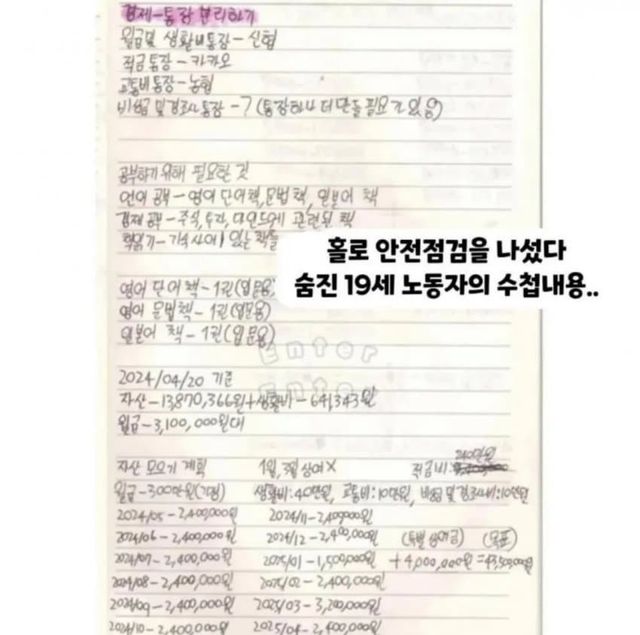 경제-통장 분리하기
월급 및 생활비통장 - 신협
적금통장 - 카카오
교통비통장 - 농협
비상금 및 경조사 통장 - ? (통장하나 더 만들 필요가 있음)
공부하기 위해 필요한 것
언어 공부 - 영어 단어책, 문법책, 일본어 책
경제 공부 - 주식, 투자, 마인드에 관련된 책
책읽기 - 기숙사에 있는 책들
홀로 안전점검을 나섰다
숨진 19세 노동자의 수첩내용..
영어 단어 책 - 1권(입문용)
영어 문법책 - 1권(입문용)
일본어 책 - 1권(입문용)
Enter
Enter
2024/04/20 기준
자산 - 13,870,366원 + 생활비 - 641,343원
월급 - 3,100,000원대
240만원
자산 모으기 계획 1월, 3월 상여X 적금비:
월급 - 300만원(가정) 생활비:40만원, 교통비:10만원, 비상금 및 경조사비:10만원
2024/05 - 2,400,000원 2024/11 - 2,400,000원
2024/06 - 2,400,000원 2024/12 - 2,400,000원 (특별 상여금) (목표)
2024/07 - 2,400,000원 2025/01 - 1,500,000원 + 4,000,000원 = 43,500,000원
2024/08 - 2,400,000원 2025/02 - 2,400,000원
2024/09 - 2,400,000원 2025/03 - 3,200,000원
2024/10 - 2,400,000원 2025/04 - 2,400,000원